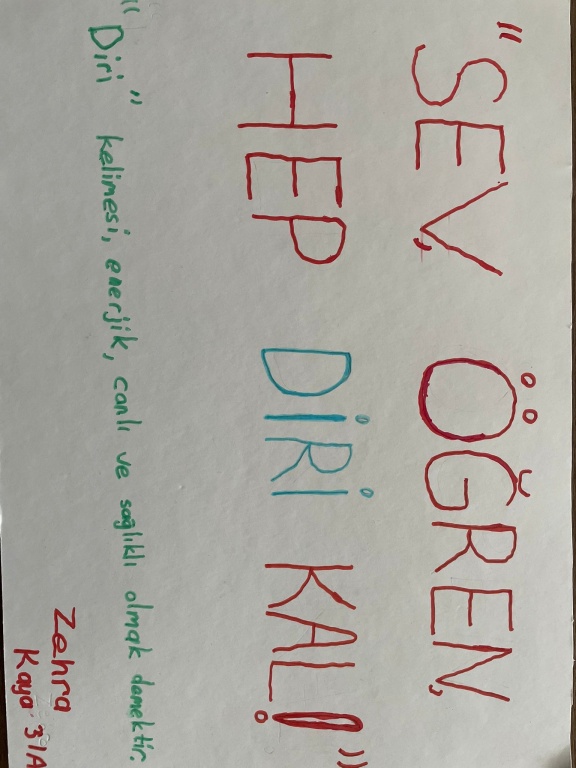 "SEV, ÖĞREN,
HEP DİRİ KAL!"
"Diri" kelimesi, enerjik, canlı ve sağlıklı olmak demektir.
Zehra
Kaya 3/A